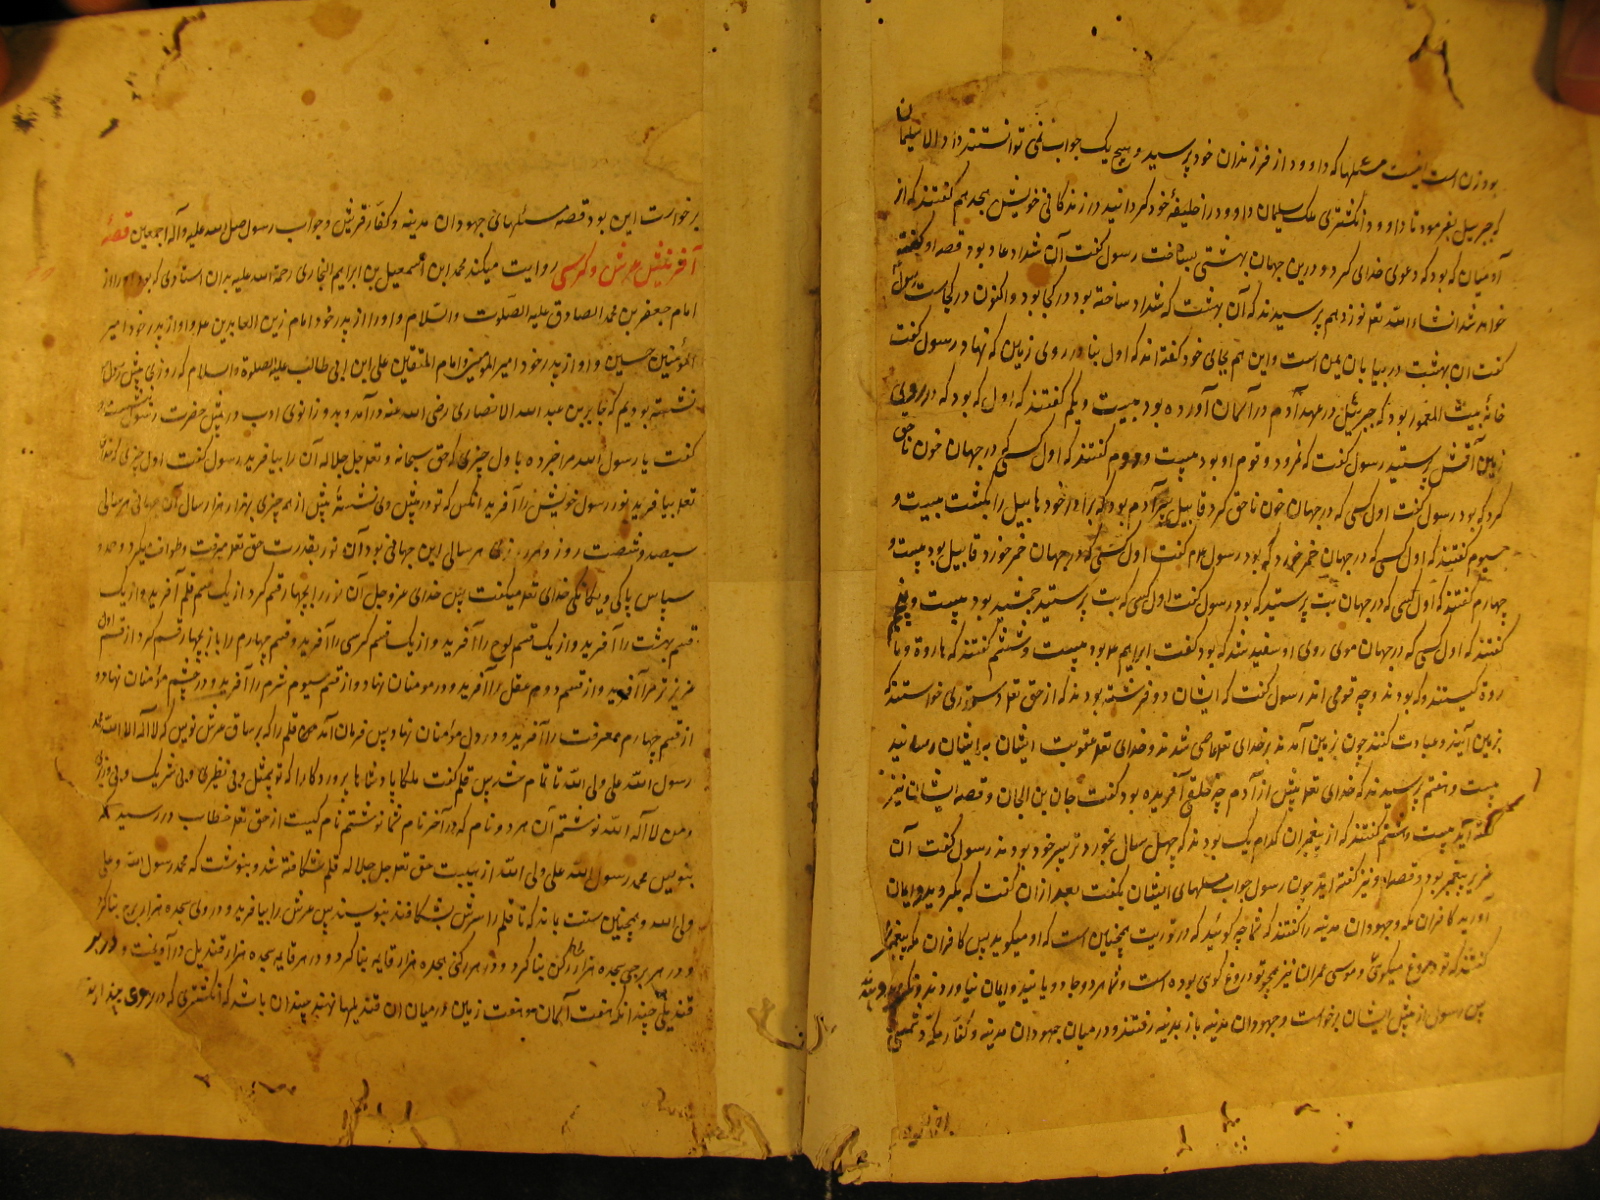 بود زن است اینست مسئلها که داوود از فرزندان خود پرسید و هیچ یک جواب نمی توانستند داد الا سلیمان
که جبرییل بفرمود تا داوود انگشتری ملک سلیمان داد و در را خلیفهٔ خود گردانید در زندگانی خویش هجدهم گفتند که از
آدمیان که بود که دعوی خدای کرد و درین جهان بهشتی بساخت رسول گفت آن شداد عاد بود قصه او گفته
خواهد شد انشاء الله تعا نوزدهم پرسیدند که آن بهشت که شداد ساخته بود در کجا بود و اکنون در کجاست رسول
گفت ان بهشت در بیابان یمن است و این هم بجای خود گفته اند که اول بنا در روی زمین که نهاد رسول گفت
خانهٔ بیت المعمور بود که جبرئیل در عهد آدم در آسمان آورده بود بیست و یکم گفتند که اول که بود که در روی
زمین آتش پرستید رسول گفت که نمرود و قوم او بود بیست و دوم گفتند که اول کسی که در جهان خون ناحق
کرد که بود رسول گفت اول کسی که در جهان خون ناحق کرد قابیل پسر آدم بود که برادر خود هابیل را بکشت بیست و
سیوم گفتند که اول کسی که در جهان خمر خورد که بود رسول هم گفت اول کسی که در جهان خمر خورد قابیل بود بیست و
چهارم گفتند که اول کسی که در جهان بت پرستید که بود رسول گفت اول کسی که بت پرستید جمشید بود بیست و پنجم
گفتند که اول کسی که در جهان موی روی او سفید شد که بود گفت ابراهیم عم بود بیست و ششم گفتند که هاروة و ما
روة کیستند و که بودند و چه قومی اند رسول گفت که ایشان دو فرشته بودند که از حق تعا دستوری خواستند
بزمین آیند و عبادت کنند چون بزمین آمدند بر خدای تعا عاصی شدند و خدای تعا عقوبت ایشان به ایشان رسانید
بیست و هفتم پرسیدند که خدای تعا پیش از آدم چه خلق آفریده بود گفت جان بن الجان و قصه ایشان نیز
گفته آید بیست و هشتم گفتند که از پیغمبران کدام یک بودند که چهل سال بخورد تر پسر خود بودند رسول گفت آن
عزیر پیغمبر بود و قصه او نیز گفته اید چون رسول جواب مسلهای ایشان بگفت بعد ازان گفت که بگروید و ایمان
آورید کافران مکه و جهودان مدینه را گفتند که شما چه گوئید که در توریت همچنین است که او میگوید پس کافران مکه پیغمبر را
گفتند که تو دروغ میگوئی و موسی عمران نیز همچو تو دروغ گوی بوده است و شما هر دو جادویانید و ایمان نیاوردند
پس رسول از پیش ایشان برخواست و جهودان مدینه باز بمدینه رفتند و در میان جهودان مدینه و کفار مکه دشمنی
برخواست این بود قصه مسئلهای جهودان مدینه و کفار قریش و جواب رسول صلی الله علیه و آله اجمعین قصهٔ
آفرینش عرش و کرسی روایت میکند محمد ابن اسمعیل بن ابراهیم البخاری رحمة الله علیه بدان اسنادی که بود او را از
امام جعفر بن محمد الصادق علیه الصلوت والسلام و او را از پدر خود امام زین العابدین عم و او از پدر خود امیر
المؤمنین حسین و او از پدر خود امیر المؤمنین و امام المتقین علی ابن ابی طالب علیه الصلوة والسلام که روزی پیش رسول
نشسته بودیم که جابر بن عبد الله الانصاری رضی الله عنه در آمد و بدو زانوی ادب در پیش حضرت رسول بنشست و
گفت یا رسول الله مرا خبر ده باول چیزی که حق سبحانه و تعا جل جلاله آن را بیافرید رسول گفت اول چیزی که خدای
تعا بیافرید نور رسول خویش را آفرید انکس که تو در پیش وی نشستهٔ پیش از همه چیزی بهزار هزار سال آن جهانی هر سالی
سیصد و شصت روز و هر روزی هر سالی این جهانی بود آن نور بقدرت حق تعا میرفت و طواف میکرد و حمد و
سپاس پاکی و یگانگی خدای تعا میگفت پس خدای عز و جل آن نور را بچهار قسم کرد از یک قسم قلم آفرید و از یک
قسم بهشت را آفرید و از یک قسم لوح را آفرید و از یک قسم کرسی را آفرید و قسم چهارم را باز بچهار قسم کرد از قسم اول
عزیز تر مرا آفرید و از قسم دوم عقل را آفرید و در مومنان نهاد و از قسم سیوم شرم را آفرید و در چشم مؤمنان نهاد و
از قسم چهارم معرفت را آفرید و در دل مؤمنان نهاد پس فرمان آمد قلم را که بر ساق عرش نویس که لا اله الا الله محمد
رسول الله علی ولی الله تا تمام شد پس قلم گفت ملکا پادشاها پروردگارا که تو بیمثل و بی نظیری و بی شریک و بی وزیری
و من لا اله الا الله نوشتم آن هر دو نام که در آخر نام شما نوشتم نام کیست از حق تعا خطاب در رسید که
بنویس محمد رسول الله علی ولی الله از هیبت حق تعا جل جلاله قلم شکافته شد و بنوشت که محمد رسول الله و علی
ولی الله و همچنین سنت بماند که تا قلم را سرش بشکافند بنویسد پس عرش را بیافرید و در وی سجده هزار برج بنا کرد
و در هر برجی سجده هزار رکن بنا کرد و در هر رکنی هجده هزار قایمه بنا کرد و در هر قایمه سجده هزار قندیل در آویخت و در هر
قندیلی چندانکه هفت آسمان و هفت زمین در میان ان قندیلها نهند چندان باشد که انگشتری که در روی بیندازند